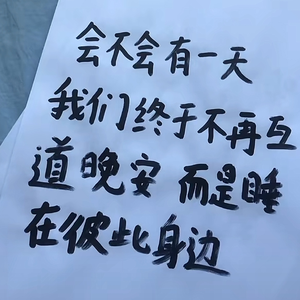 会不会有一天
我们终于不再互
道晚安 而是睡
在彼此身边